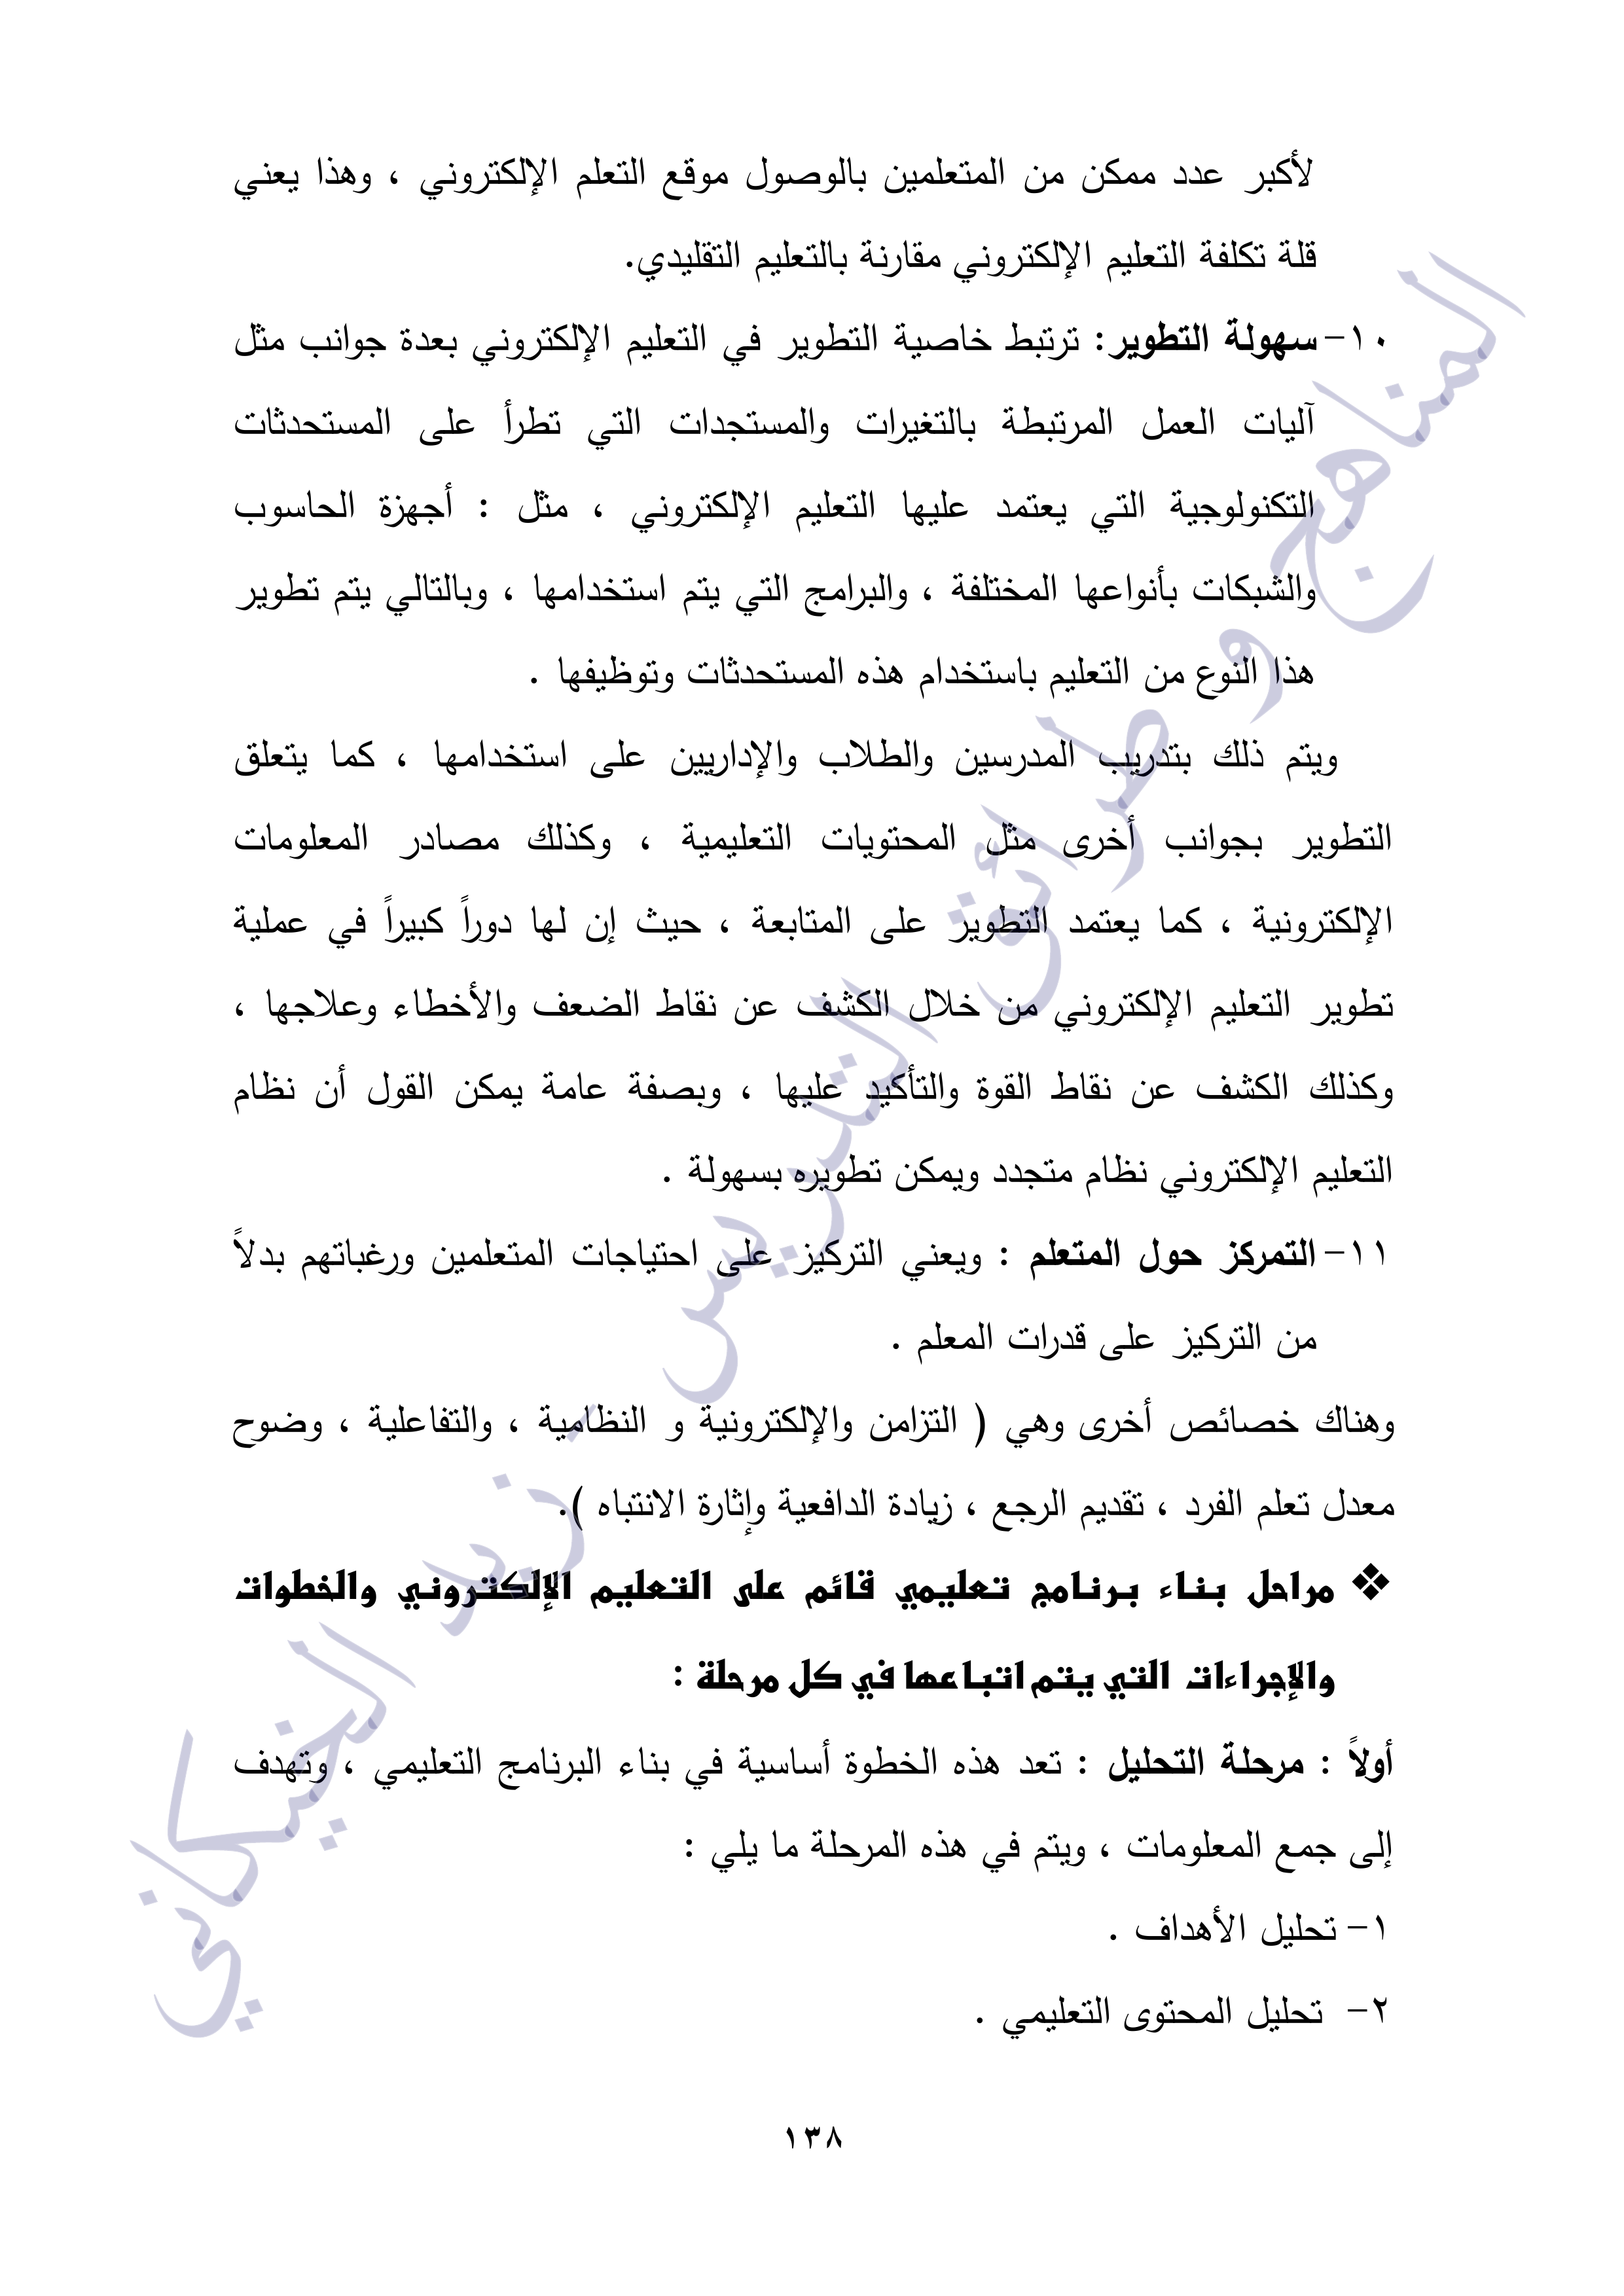 لأكبر عدد ممكن من المتعلمين بالوصول موقع التعلم الإلكتروني ، وهذا يعني
قلة تكلفة التعليم الإلكتروني مقارنة بالتعليم التقليدي.
١٠- سهولة التطوير: ترتبط خاصية التطوير في التعليم الإلكتروني بعدة جوانب مثل
آليات العمل المرتبطة بالتغيرات والمستجدات التي تطرأ على المستحدثات
التكنولوجية التي يعتمد عليها التعليم الإلكتروني ، مثل : أجهزة الحاسوب
والشبكات بأنواعها المختلفة ، والبرامج التي يتم استخدامها ، وبالتالي يتم تطوير
هذا النوع من التعليم باستخدام هذه المستحدثات وتوظيفها .
ويتم ذلك بتدريب المدرسين والطلاب والإداريين على استخدامها ، كما يتعلق
التطوير بجوانب أخرى مثل المحتويات التعليمية ، وكذلك مصادر المعلومات
الإلكترونية ، كما يعتمد التطوير على المتابعة ، حيث إن لها دوراً كبيراً في عملية
تطوير التعليم الإلكتروني من خلال الكشف عن نقاط الضعف والأخطاء وعلاجها ،
وكذلك الكشف عن نقاط القوة والتأكيد عليها ، وبصفة عامة يمكن القول أن نظام
التعليم الإلكتروني نظام متجدد ويمكن تطويره بسهولة .
١١- التمركز حول المتعلم : ويعني التركيز على احتياجات المتعلمين ورغباتهم بدلاً
من التركيز على قدرات المعلم .
وهناك خصائص أخرى وهي ( التزامن والإلكترونية و النظامية ، والتفاعلية ، وضوح
معدل تعلم الفرد ، تقديم الرجع ، زيادة الدافعية وإثارة الانتباه ).
❖ مراحل بناء برنامج تعليمي قائم على التعليم الإلكتروني والخطوات
والإجراءات التي يتم اتباعها في كل مرحلة :
أولاً : مرحلة التحليل : تعد هذه الخطوة أساسية في بناء البرنامج التعليمي ، وتهدف
إلى جمع المعلومات ، ويتم في هذه المرحلة ما يلي :
١- تحليل الأهداف .
٢- تحليل المحتوى التعليمي .
١٣٨
المناهج و طرائق التدريس - زيد الخيكاني